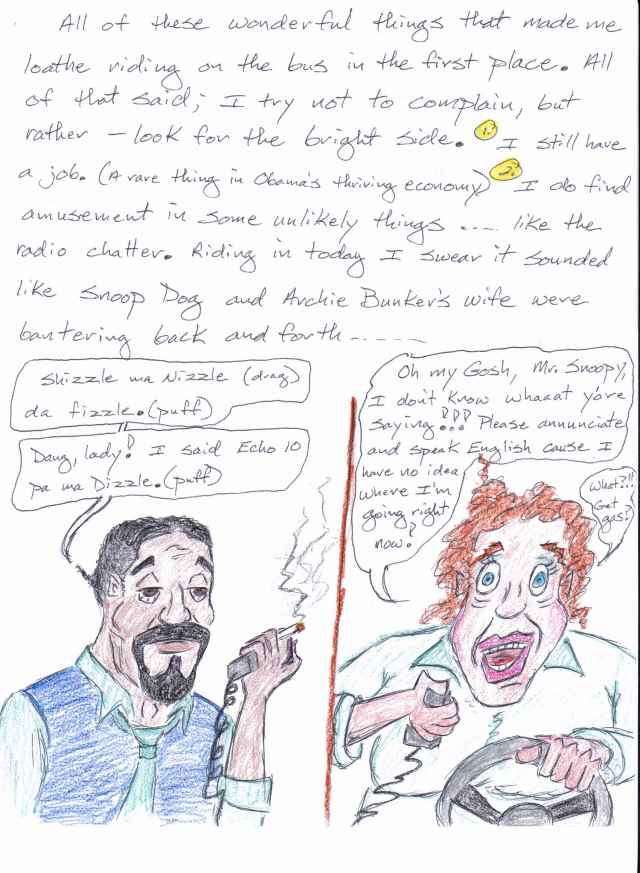 All of these wonderful things that made me
loathe riding on the bus in the first place. All
of that said; I try not to complain, but
rather - look for the bright side. 1? I still have
a job. (A rare thing in Obama's thriving economy) 2? I do find
amusement in some unlikely things .... like the
radio chatter. Riding in today I swear it sounded
like Snoop Dog and Archie Bunker's wife were
bantering back and forth -----
Shizzle ma Nizzle (drag)
da fizzle. (puff)
Dang, lady! I said Echo 10
pa ma Dizzle. (puff)
Oh my Gosh, Mr. Snoopy,
I don't know whaaat yo're
saying!?!? Please annunciate
and speak English cause I
have no idea
where I'm
going right
now!
What?!!
Get
gas?